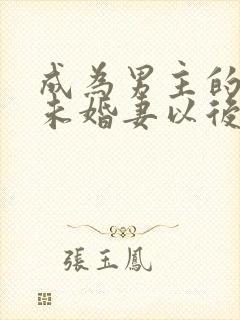 成為男主的
未婚妻以後
張玉鳳